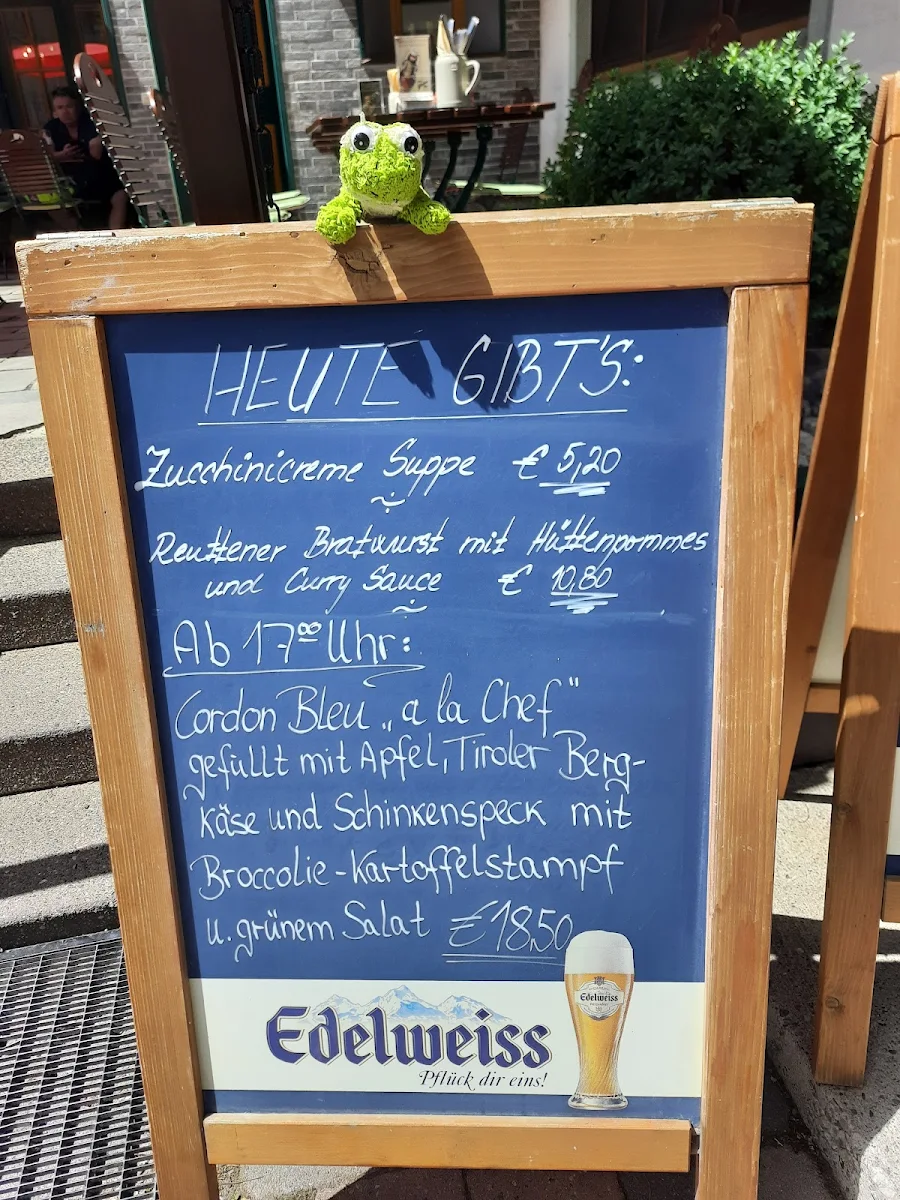 HEUTE GIBT'S:
Zucchinicreme Suppe € 5,20
Reuttener Bratwurst mit Hüttenpommes
und Curry Sauce € 10,80
Ab 17⁰⁰ Uhr:
Cordon Bleu „a la Chef"
gefüllt mit Apfel, Tiroler Berg-
käse und Schinkenspeck mit
Broccolie-Kartoffelstampf
u. grünem Salat € 18,50
Edelweiss
Pflück dir eins!
Edelweiss